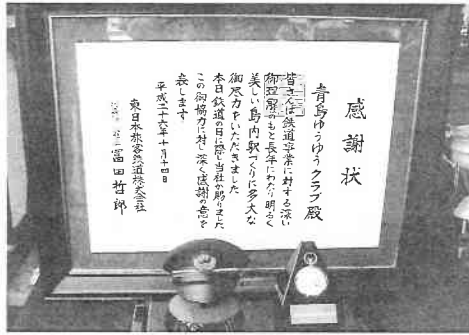 感謝状
青島ゆうゆうクラブ殿
皆さんは鉄道事業に対する深い
御理解のもと長年にわたり明るく
美しい島内駅づくりに多大な
御尽力をいただきました
本日鉄道の日に際し当社が賜りました
この御協力に対し深く感謝の意を
表します
平成二十六年十月十四日
東日本旅客鉄道株式会社
冨田哲郎